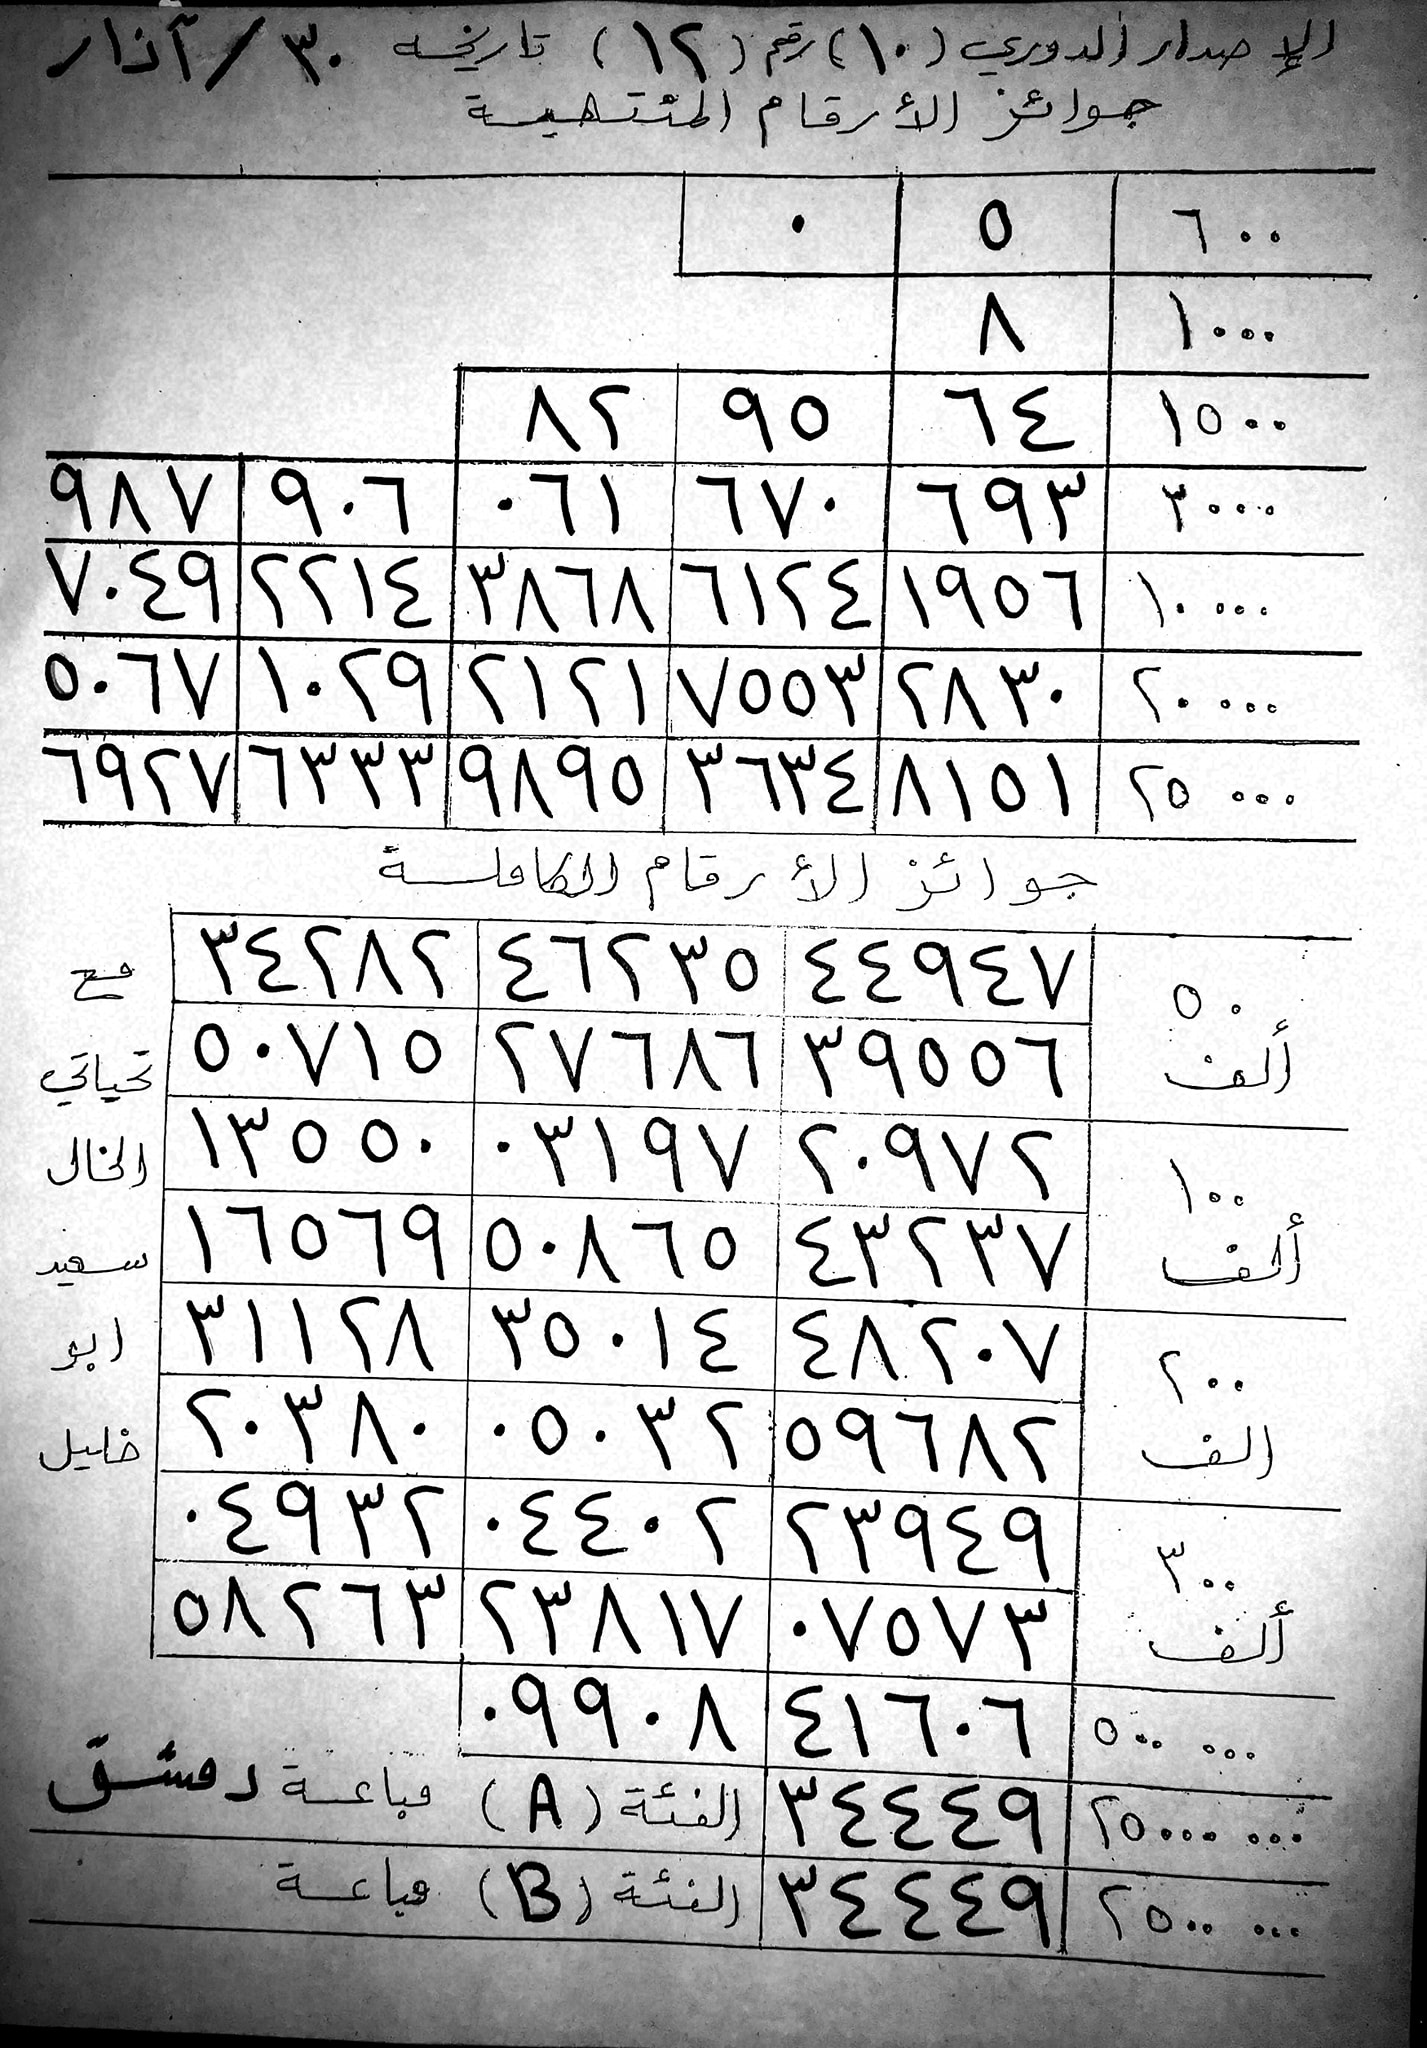 الإصدار الدوري (١٠) رقم (١٢) تاريخه ٣٠/آذار
جوائز الأرقام المنتهية
٦٠٠ ٥ ٠
١٠٠٠ ٨
١٥٠٠ ٦٤ ٩٥ ٨٢
٣٠٠٠ ٦٩٣ ٦٧٠ ٠٦١ ٩٠٦ ٩٨٧
١٠٠٠٠ ١٩٥٦ ٦١٢٤ ٣٨٦٨ ٢٢١٤ ٧٠٤٩
٢٠٠٠٠ ٢٨٣٠ ٧٥٥٣ ٢١٢١ ١٠٢٩ ٥٠٦٧
٢٥٠٠٠ ٨١٥١ ٣٦٣٤ ٩٨٩٥ ٦٣٣٣ ٦٩٢٧
جوائز الأرقام الكاملة
٥٠ ٤٤٩٤٧ ٤٦٢٣٥ ٣٤٢٨٢ مع
ألف ٣٩٥٥٦ ٢٧٦٨٦ ٥٠٧١٥ تحياتي
١٠٠ ٢٠٩٧٢ ٠٣١٩٧ ١٣٥٥٠ الخال
ألف ٤٣٢٣٧ ٥٠٨٦٥ ١٦٥٦٩ سعيد
٢٠٠ ٤٨٢٠٧ ٣٥٠١٤ ٣١١٢٨ ابو
الف ٥٩٦٨٢ ٠٥٠٣٢ ٢٠٣٨٠ خليل
٣٠٠ ٢٣٩٤٩ ٠٤٤٠٢ ٠٤٩٣٢
ألف ٠٧٥٧٣ ٢٣٨١٧ ٥٨٢٦٣
٥٠٠ ٠٠٠ ٤١٦٠٦ ٠٩٩٠٨
٢٥٠٠٠ ٠٠٠ ٣٤٤٤٩ الفئة (A) مباعة دمشق
٢٥٠٠ ٠٠٠ ٣٤٤٤٩ الفئة (B) مباعة